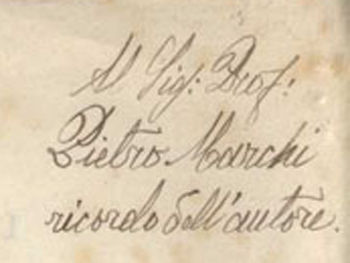 Al Sig: Prof:
Pietro Marchi
ricordo dell'autore.